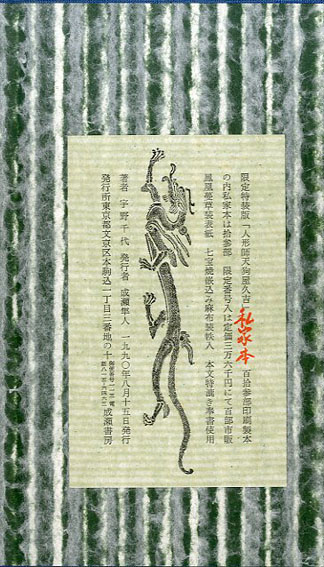 限定特装版「人形師天狗屋久吉」 百拾参部印刷製本
私家本
の内私家本は拾参部 限定番号入は定価三万六千円にて百部市販
鳳凰蔓草装表紙 七宝焼嵌込み麻布装帙入 本文特漉き奉書使用
著者 宇野千代 発行者 成瀬隼人 一九九〇年八月十五日発行
発行所東京都文京区本駒込一丁目三番地の十 成瀬書房